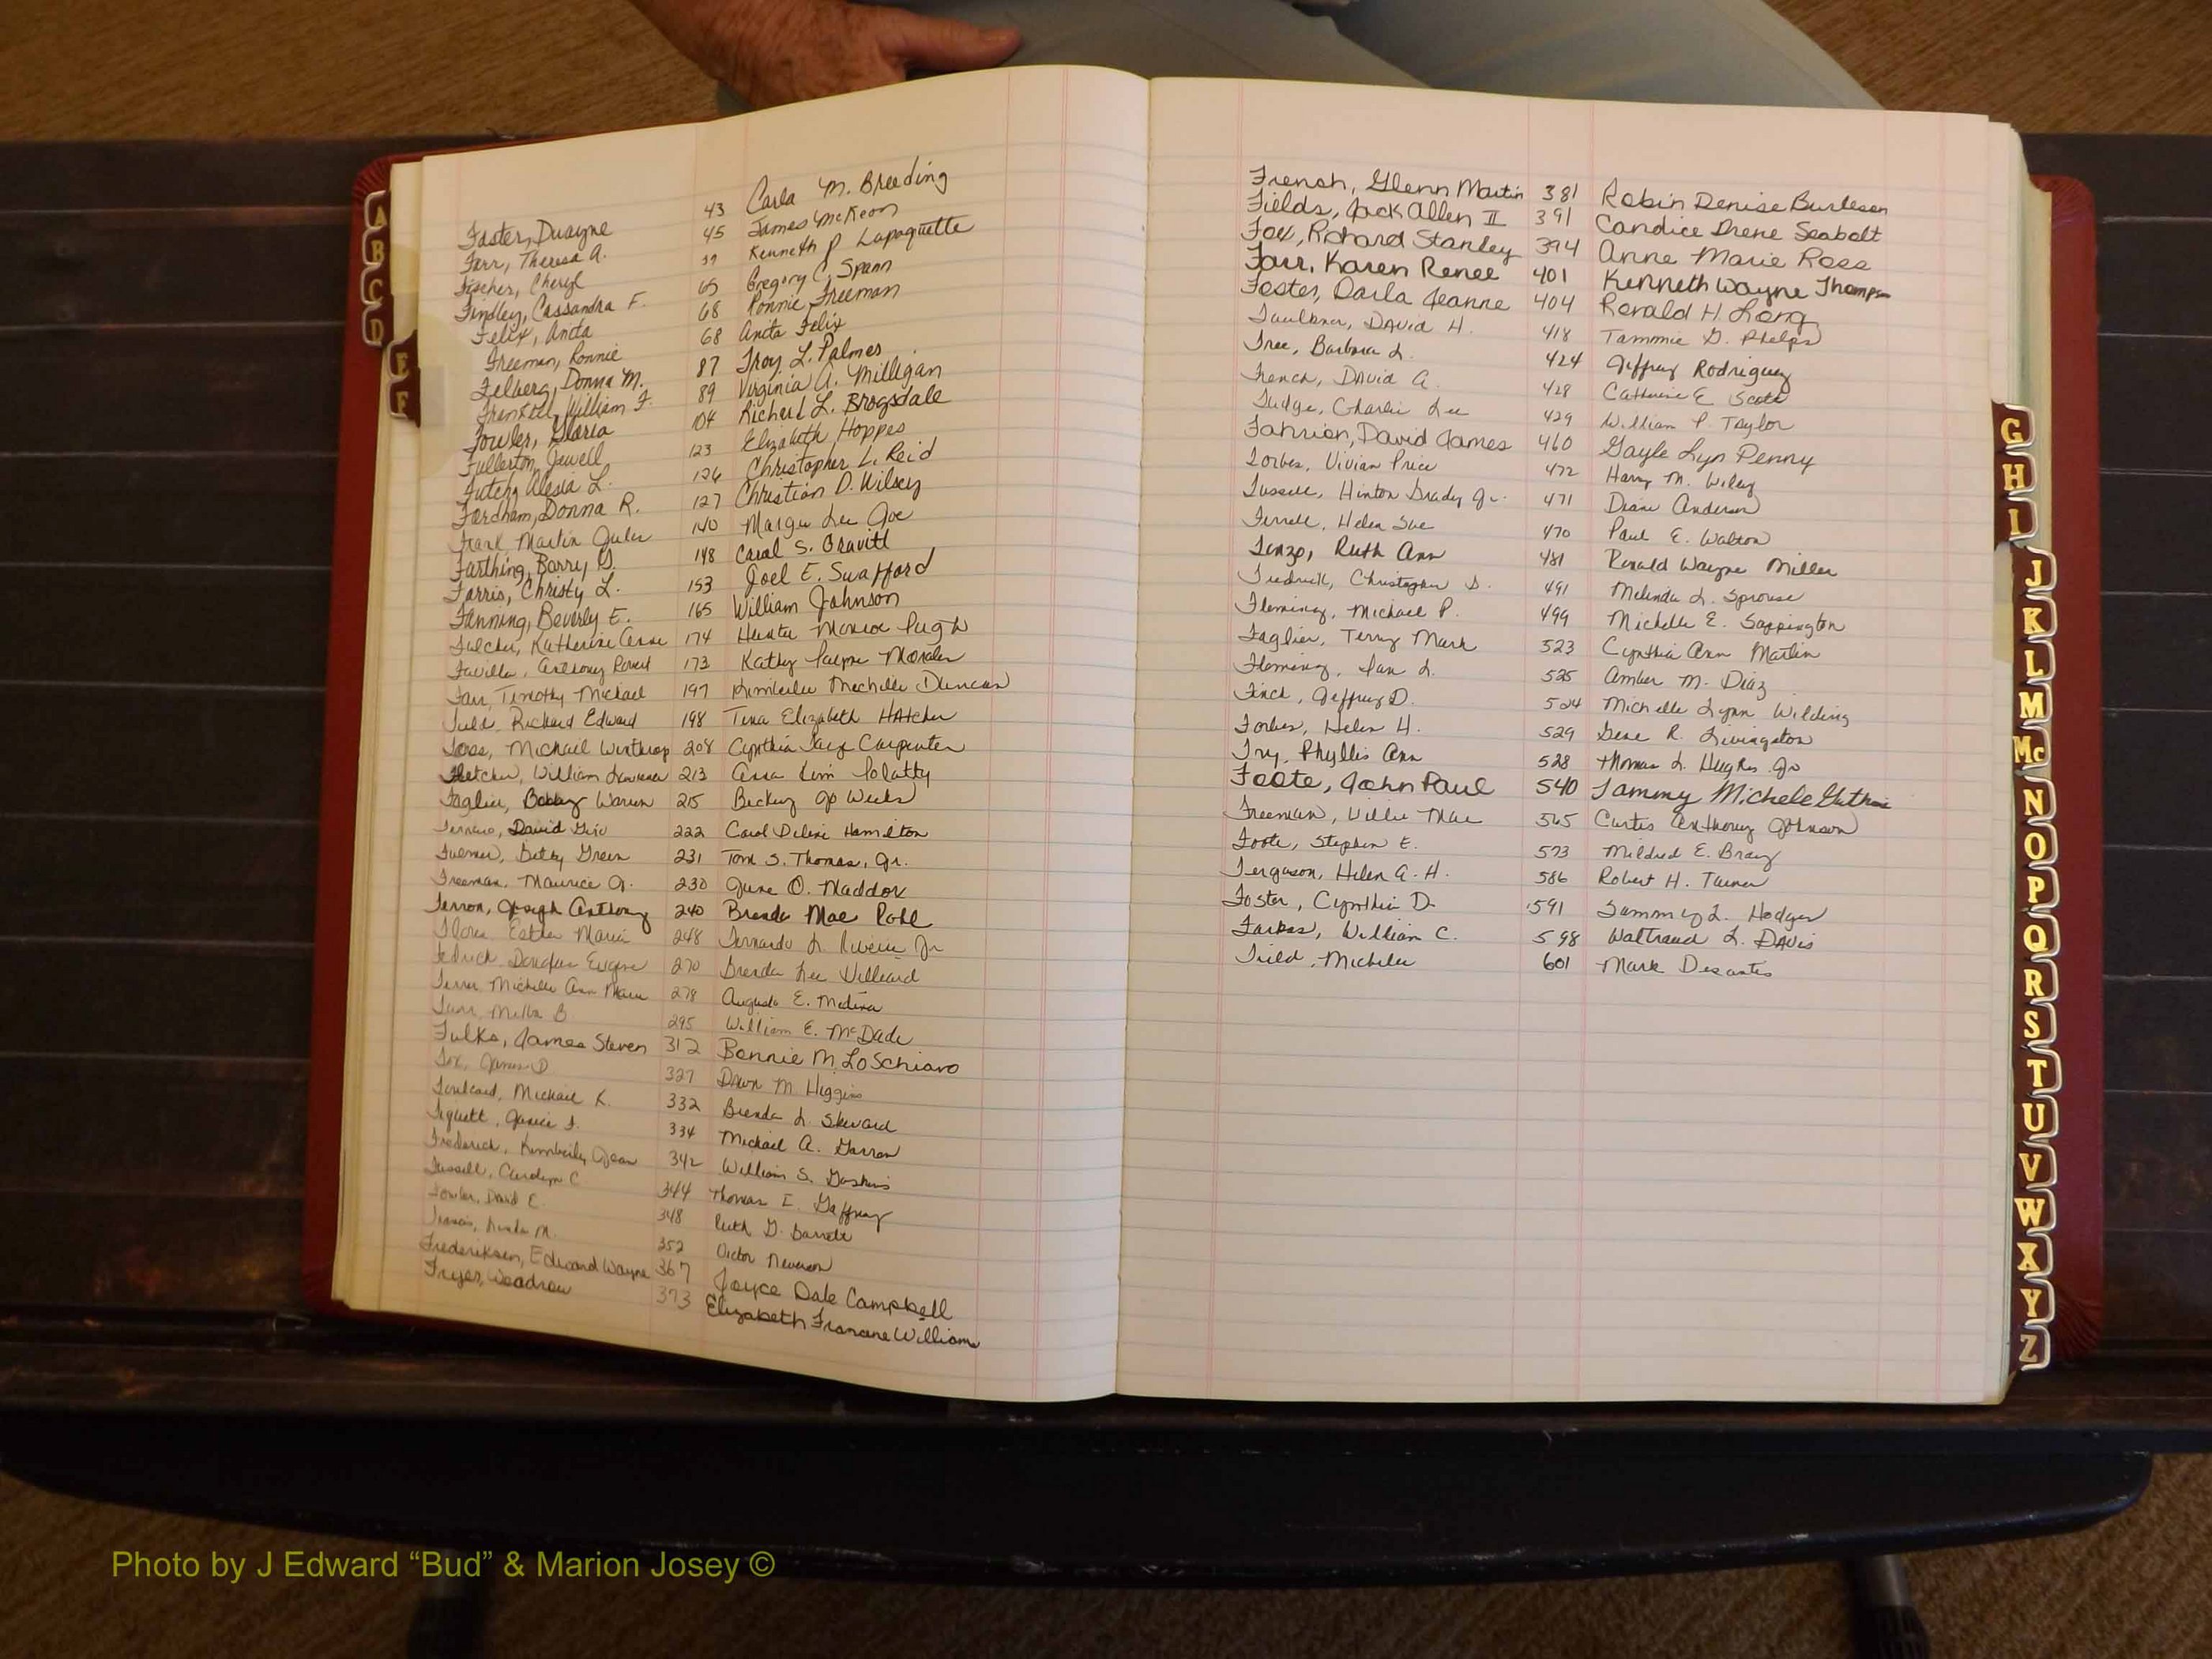 Foster, Duayne 43 Carla M. Breeding
Farr, Theresa A. 45 James McKeon
Fischer, Cheryl 59 Kenneth P. Lapaquette
Findley, Cassandra F. 65 Gregory C. Spann
Felix, Anita 68 Ronnie Freeman
Freeman, Ronnie 68 Anita Felix
Felberg, Donna M. 87 Troy L. Palmes
William F. 89 Virginia A. Milligan
Fowler, Gloria 104 Richard L. Brogsdale
Fullerton, Jewell 123 Elizabeth Hoppes
Futch, Alesia L. 126 Christopher L. Reid
Fordham, Donna R. 127 Christian D. Wilsey
Frank, Martin Jules 140 Margie Lee Joe
Farthing, Barry G. 148 Carol S. Gravitt
Farris, Christy L. 153 Joel E. Swafford
Fanning, Beverly E. 165 William Johnson
Fulcher, Katherine Anne 174 Hunter Monroe Pugh
Faville, Anthony 173 Kathy Payne Morales
Farr, Timothy Michael 197 Kimberlee Mechelle Duncan
Richard Edward 198 Tina Elizabeth Hatcher
Foss, Michael Winthrop 208 Cynthia Faye Carpenter
Fletcher, William Lawrence 213 Anna Kim Polatty
Faglier, Bobby Warren 215 Becky Jo Weeks
David 222 Carol Delene Hamilton
Betty Green 231 Tom S. Thomas, Jr.
Freeman, Maurice J. 230 June O. Maddox
Ferron, Joseph Anthony 240 Brenda Mae Pohl
Flores, Esther Marie 248 Fernando L. Rivera Jr
Fedrick, Douglas Eugene 270 Brenda Lee Villeard
Michelle Ann Marie 278 Augusto E. Medina
Farr, Melba B 295 William E. McDade
Fulks, James Steven 312 Bonnie M. LoSchiavo
Fox, James D. 327 Dawn M. Higgins
Michael K. 332 Brenda L. Steward
Janice F. 334 Michael A. Garron
Frederick, Kimberly Jean 342 William S. Gaskins
Fussell, Carolyn C 344 Thomas E. Gaffney
Fowler, David E. 348 Ruth G. Barrett
Francis, Linda M. 352 Victor Neverson
Frederiksen, Edward Wayne 367 Joyce Dale Campbell
Fryer, Woodrow 373 Elizabeth Francine Williams
French, Glenn Martin 381 Robin Denise Burleson
Fields, Jack Allen II 391 Candice Irene Seabolt
Fox, Richard Stanley 394 Anne Marie Ross
Farr, Karen Renee 401 Kenneth Wayne Thompson
Foster, Darla Jeanne 404 Ronald H. Long
Faulkner, David H. 418 Tammie G. Phelps
Free, Barbara L. 424 Jeffrey Rodriguez
French, David A. 428 Catherine E. Scott
Fudge, Charlie Lee 429 William P. Taylor
Fahrion, David James 460 Gayle Lyn Penny
Forbes, Vivian Price 472 Harry M. Wiley
Fussell, Hinton Grady Jr. 471 Diane Anderson
Ferrell, Helen Sue 470 Paul E. Walton
Fonzo, Ruth Ann 481 Ronald Wayne Miller
Fredrick, Christopher D. 491 Melinda L. Sprouse
Fleming, Michael P. 499 Michelle E. Sappington
Faglier, Terry Mark 523 Cynthia Ann Martin
Fleming, Ian L. 525 Amber M. Diaz
Finch, Jeffrey D. 524 Michelle Lynn Wilding
Forbes, Helen H. 529 Gene R. Livingston
Fry, Phyllis Ann 528 Thomas L. Hughes Jr
Foote, John Paul 540 Tammy Michele Guthrie
Freeman, Willie Mae 565 Curtis Anthony Johnson
Foote, Stephen E. 573 Mildred E. Bray
Ferguson, Helen A. H. 586 Robert H. Turner
Foster, Cynthia D. 591 Sammy L. Hodges
Farkas, William C. 598 Waltraud L. Davis
Field, Michelle 601 Mark Desantis
A
B
C
D
E
F
G
H
I
J
K
L
M
Mc
N
O
P
Q
R
S
T
U
V
W
X
Y
Z
Photo by J Edward “Bud” & Marion Josey ©